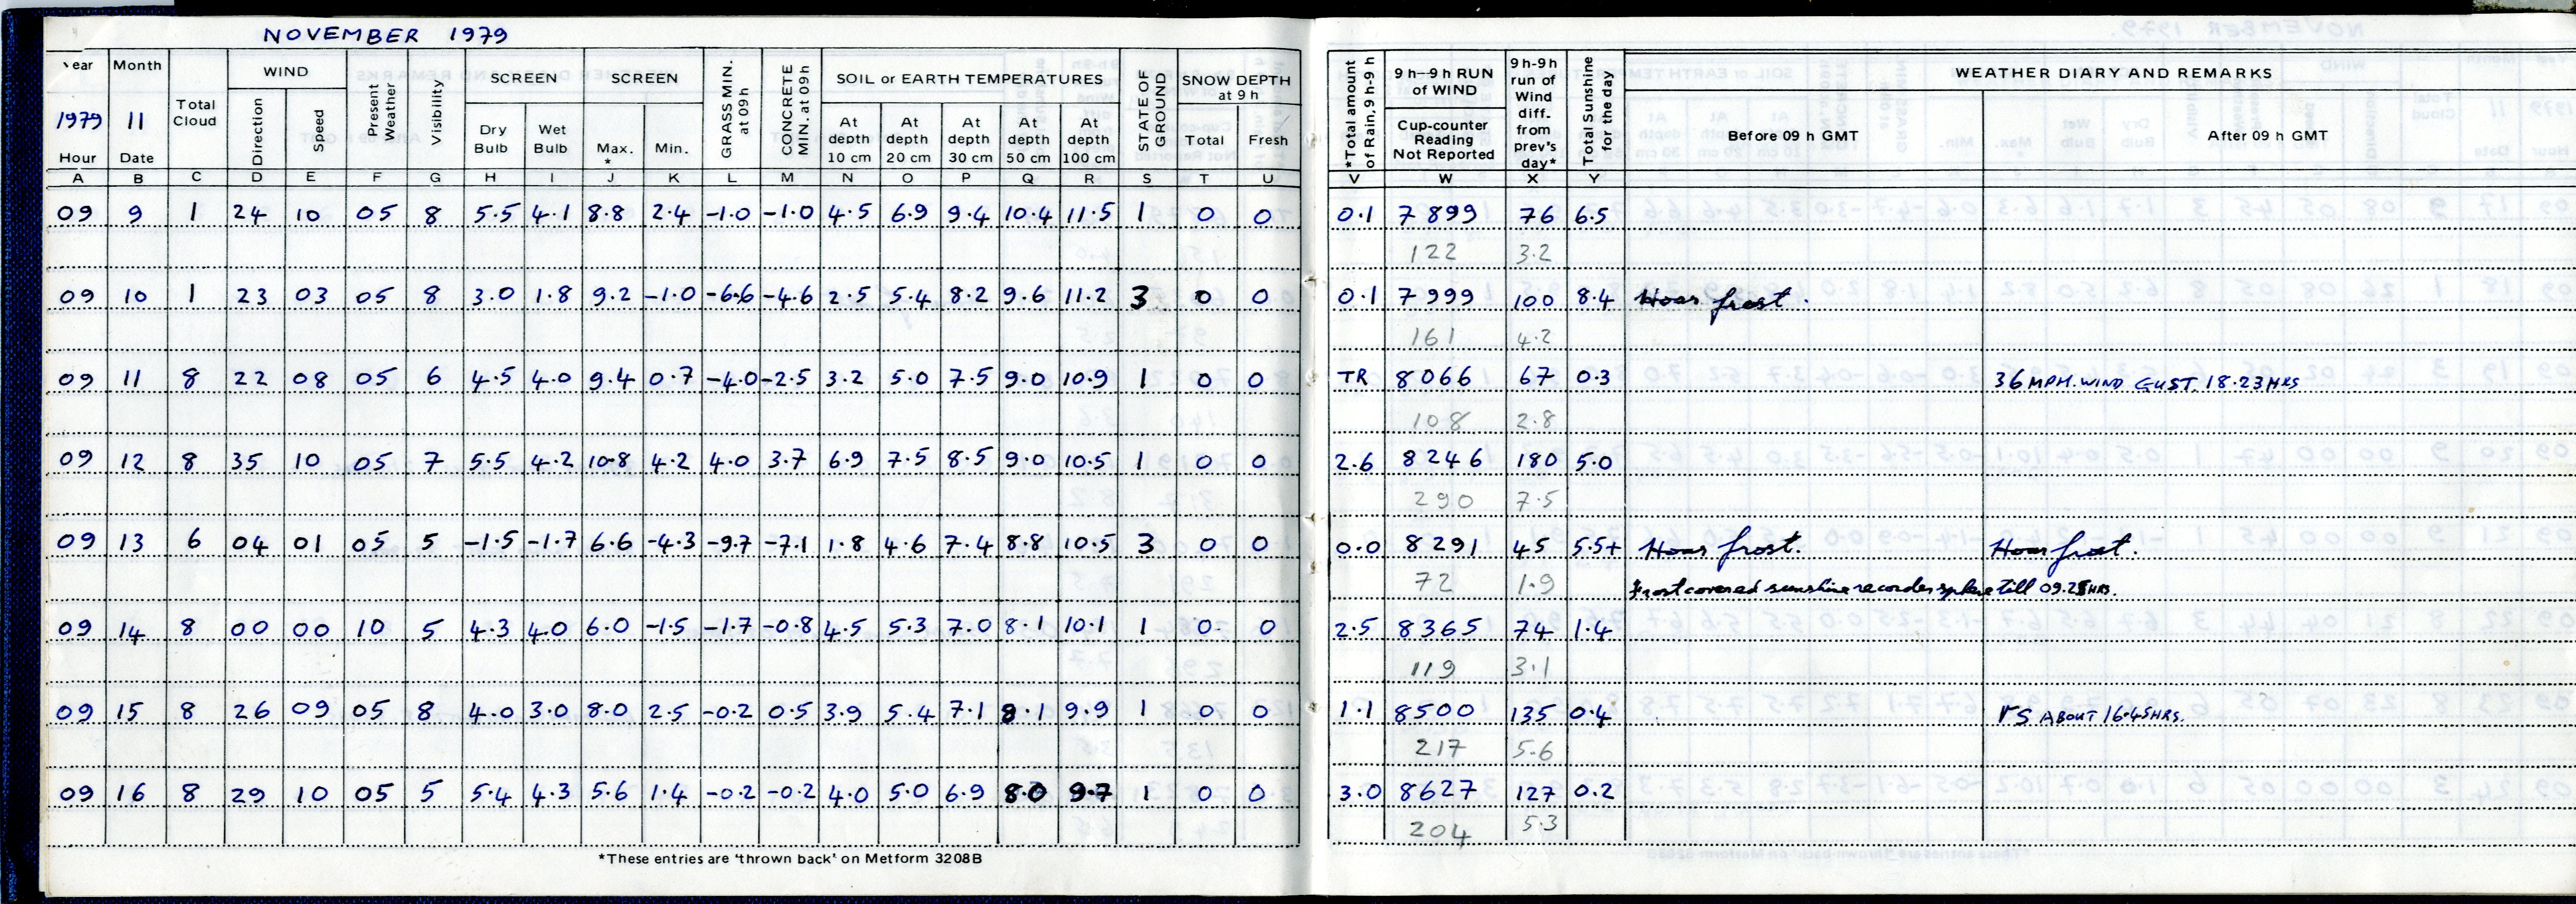 NOVEMBER 1979
Year Month Total Cloud WIND Present Weather Visibility SCREEN SCREEN GRASS MIN. at 09h CONCRETE MIN. at 09h SOIL or EARTH TEMPERATURES STATE OF GROUND SNOW DEPTH at 9 h *Total amount of Rain, 9 h-9 h 9 h-9 h RUN of WIND 9h-9h run of Wind diff. from prev's day* Total Sunshine for the day WEATHER DIARY AND REMARKS
1979 11 Direction Speed Dry Bulb Wet Bulb Max. * Min. At depth 10 cm At depth 20 cm At depth 30 cm At depth 50 cm At depth 100 cm Total Fresh Cup-counter Reading Not Reported Before 09 h GMT After 09 h GMT
Hour Date
A B C D E F G H I J K L M N O P Q R S T U V W X Y
09 9 1 24 10 05 8 5.5 4.1 8.8 2.4 -1.0 -1.0 4.5 6.9 9.4 10.4 11.5 1 0 0 0.1 7899 76 6.5
122 3.2
09 10 1 23 03 05 8 3.0 1.8 9.2 -1.0 -6.6 -4.6 2.5 5.4 8.2 9.6 11.2 3 0 0 0.1 7999 100 8.4 Hoar frost.
161 4.2
09 11 8 22 08 05 6 4.5 4.0 9.4 0.7 -4.0 -2.5 3.2 5.0 7.5 9.0 10.9 1 0 0 TR 8066 67 0.3 36 MPH. WIND GUST. 18.23 HRS
108 2.8
09 12 8 35 10 05 7 5.5 4.2 10.8 4.2 4.0 3.7 6.9 7.5 8.5 9.0 10.5 1 0 0 2.6 8246 180 5.0
290 7.5
09 13 6 04 01 05 5 -1.5 -1.7 6.6 -4.3 -9.7 -7.1 1.8 4.6 7.4 8.8 10.5 3 0 0 0.0 8291 45 5.5+ Hoar frost. Hoar frost.
72 1.9 Frost covered sunshine recorder sphere till 09.25 HRS.
09 14 8 00 00 10 5 4.3 4.0 6.0 -1.5 -1.7 -0.8 4.5 5.3 7.0 8.1 10.1 1 0 0 2.5 8365 74 1.4
119 3.1
09 15 8 26 09 05 8 4.0 3.0 8.0 2.5 -0.2 0.5 3.9 5.4 7.1 8.1 9.9 1 0 0 1.1 8500 135 0.4 rs ABOUT 16.45 HRS.
217 5.6
09 16 8 29 10 05 5 5.4 4.3 5.6 1.4 -0.2 -0.2 4.0 5.0 6.9 8.0 9.7 1 0 0 3.0 8627 127 0.2
204 5.3
*These entries are 'thrown back' on Metform 3208B